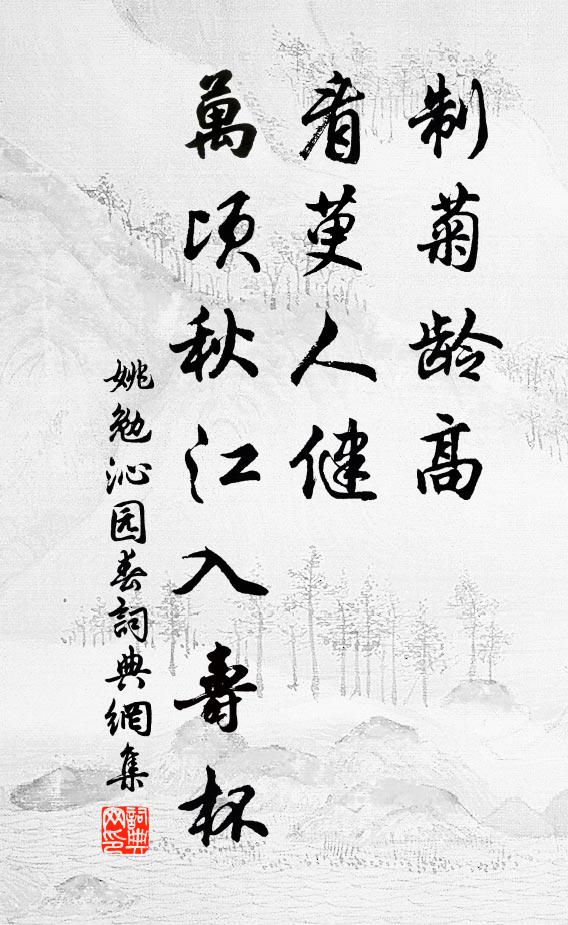 制菊龄高
看萸人健
萬顷秋江入壽杯
姚勉沁园春詞典網集
詞典网印